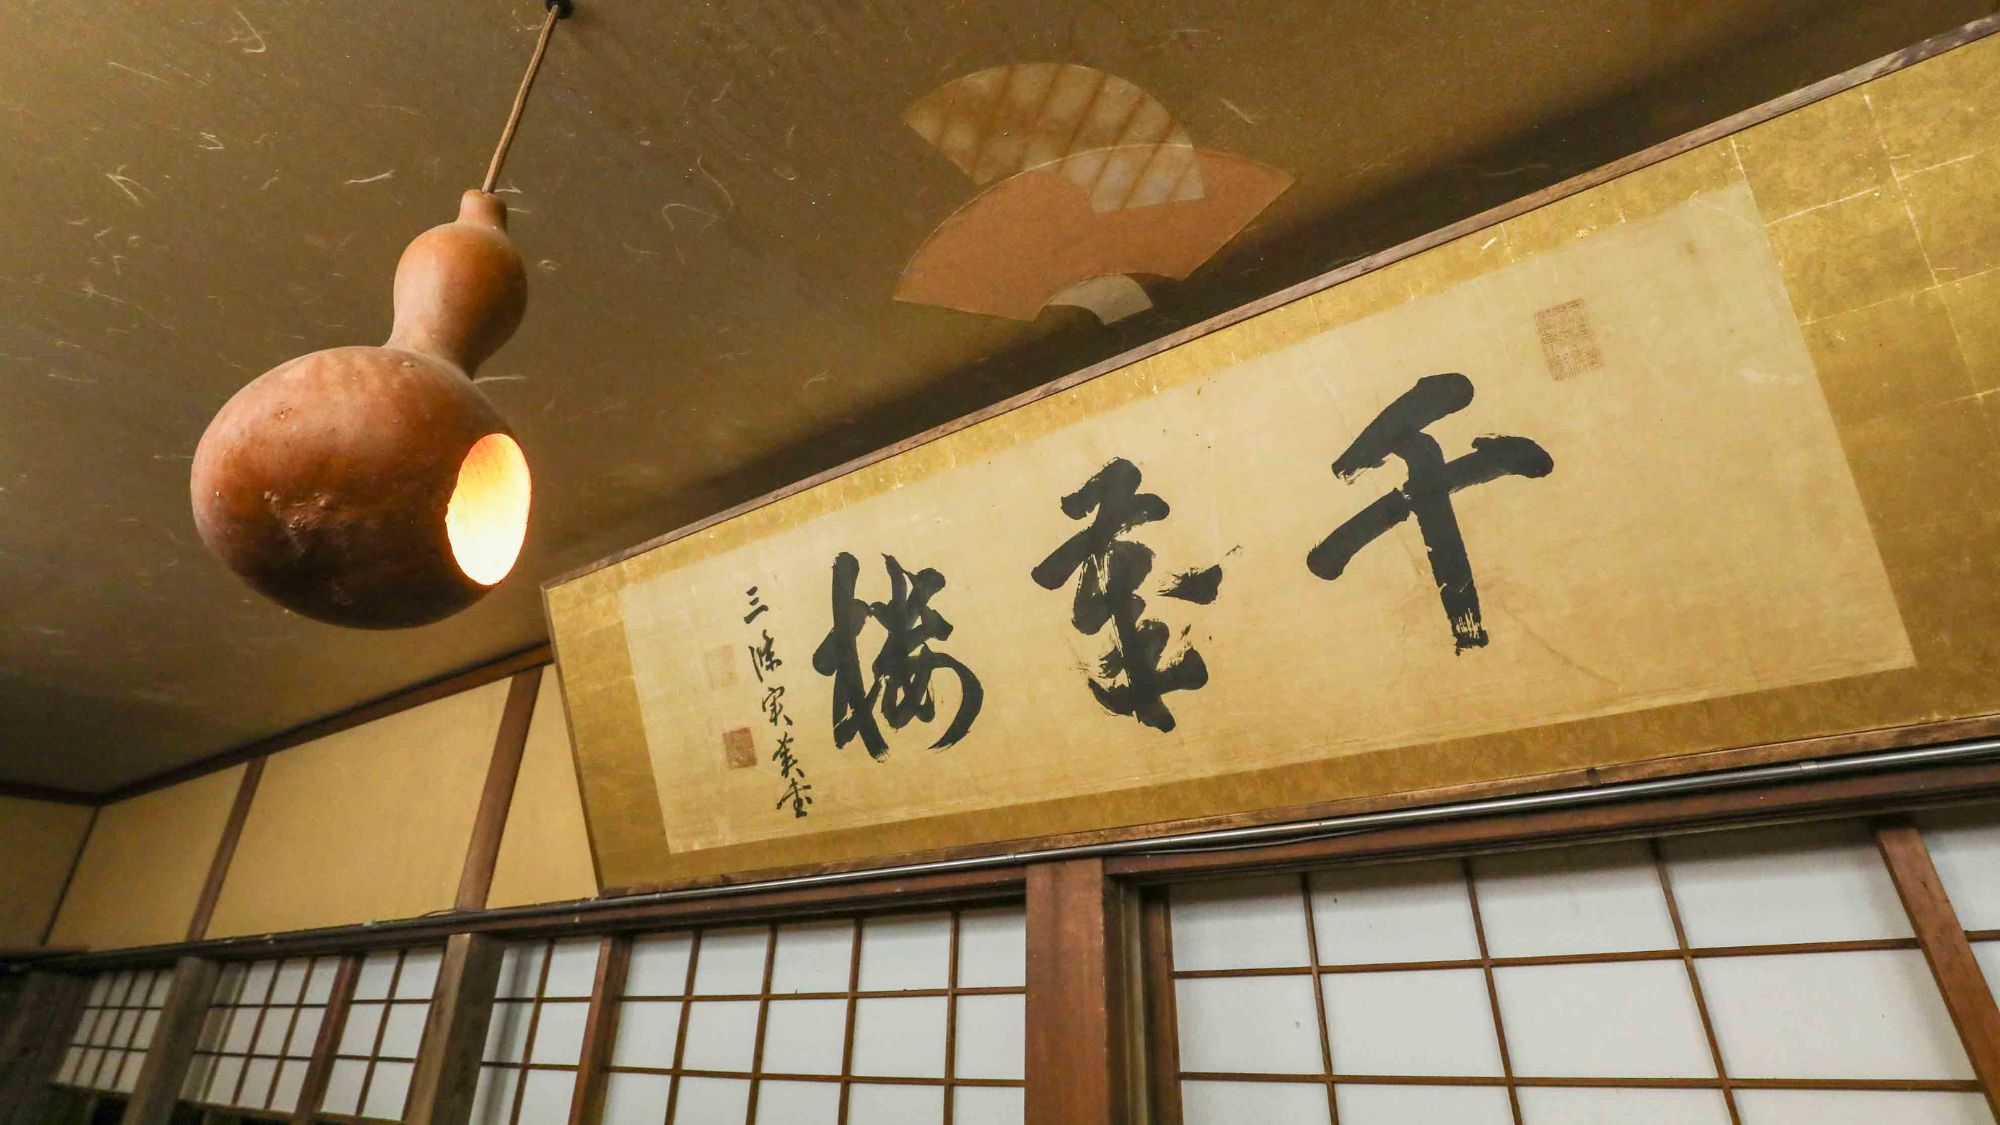 千歳楼
三條実美書